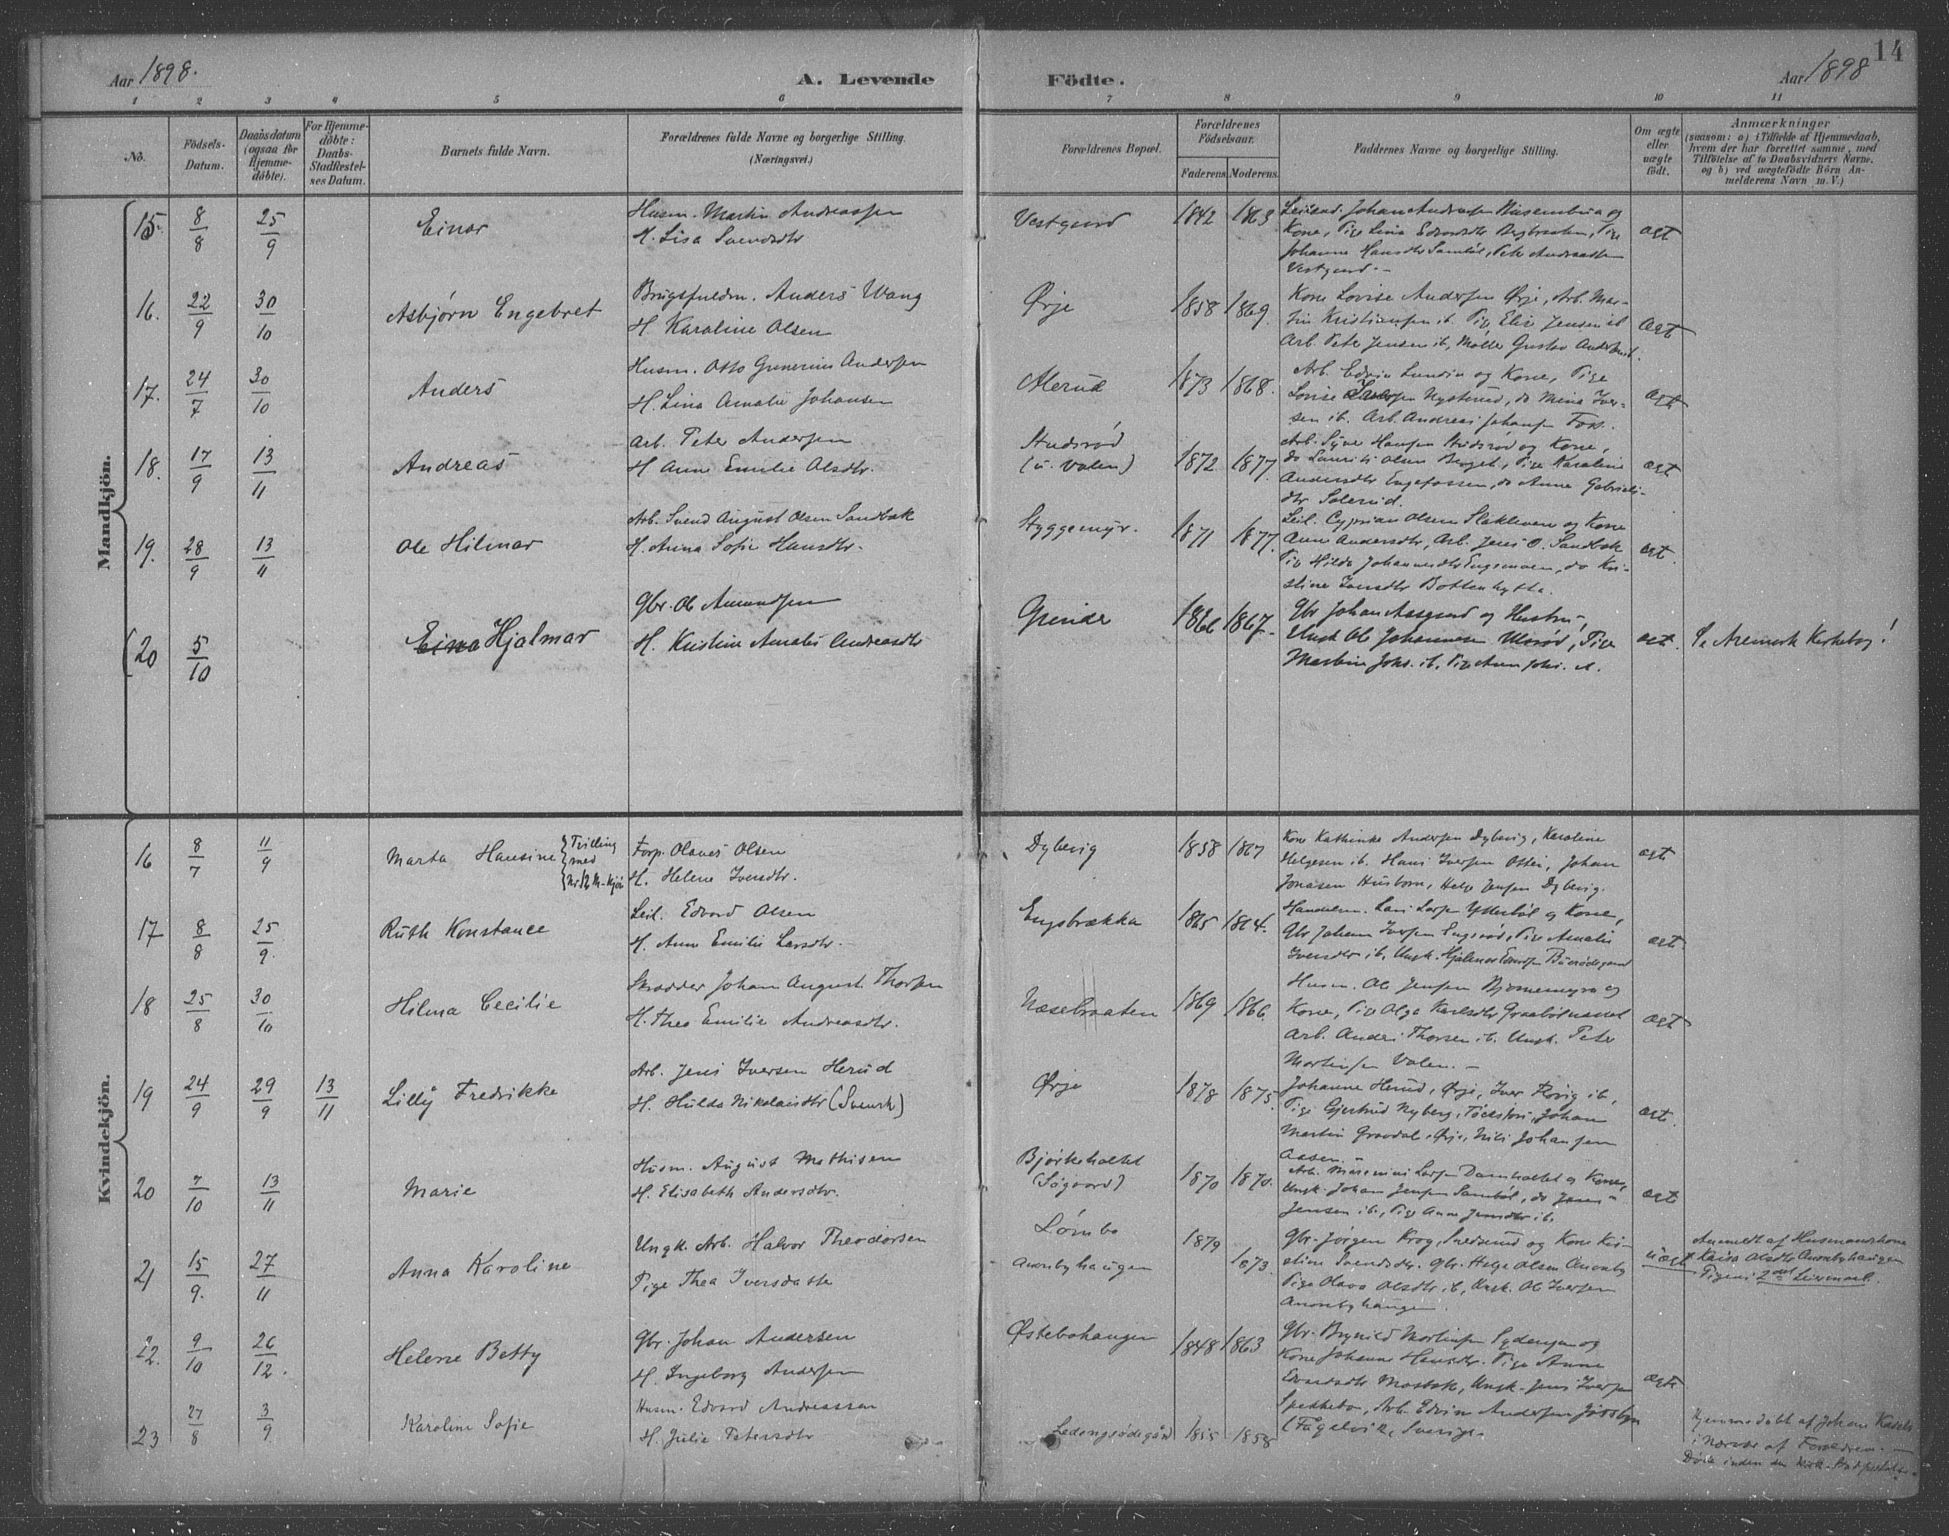 14
Aar 1898.
A. Levende Födte.
Aar 1898
1 2 3 4 5 6 7 8 9 10 11
No.
Födsels-Datum.
Daabsdatum (ogsaa for Hjemmedöbte).
For Hjemmedöbte: Daabs-Stadfæstelses Datum.
Barnets fulde Navn.
Forældrenes fulde Navne og borgerlige Stilling. (Næringsvei.)
Forældrenes Bopæl.
Forældrenes Födselsaar.
Faderens. Moderens.
Faddernes Navne og borgerlige Stilling.
Om ægte eller uægte födt.
Anmærkninger
(saasom: a) i Tilfælde af Hjemmedaab, hvem der har forrettet samme, med Tilföielse af to Daabsvidners Navne, og b) ved uægtefödte Börn Anmelderens Navn m. V.)
Mandkjön.
15. 8/8 25/9 Einar
Husm. Martin Andreassen
H. Lisa Svendsdtr
Vestgard 1842 1863
Kone, Pige Lina Edvardsdtr Bergbraaten, Pige
Johanne Hansdtr Samböl, Peter Andreassen
Vestgard. -
ægt
16. 22/9 30/10 Asbjørn Engebret
Brugsfuldm. Anders Wang
H. Karoline Olsen
Ørje 1858 1869.
Kone Lovise Andersen Ørje, Arb. Mar-
tin Kristiansen ib. Pige Elise Jensen ib
Arb. Peter Jensen ib, Møller Gustav
ægt
17. 24/7 30/10 Anders
Husm. Otto Grunerius Andersen
H. Lina Amalie Johansen
Alerud 1873 1868.
Arb. Edvin Lundin og Kone, Pige
Lovise Nysterud, do Mina Iver-
sen ib. Arb. Andreas Johansen Foss.
ægt
18. 17/9 13/11 Andreas
Arb. Peter Andersen
H Anne Emilie Olsdtr.
Studsrød
(u. Valen) 1872 1877.
Arb. Syver Hansen Studsrød og Kone,
do Laurits Olsen Berget, Pige Karoline
Andersdtr Engefossen, do Anne Gabriels-
dtr Solerud.
ægt
19. 28/9 13/11 Ole Hilmar
Arb. Svend August Olsen Sandbæk
H. Anna Sofie Hansdtr.
Styggemyr. 1871 1877.
Leil. Cyprian Olsen Slakleven og Kone
Anne Andersdtr, Arb. Jens O. Sandbæk
Pige Hilda Johannesdtr Engemoen, do Kri-
stine Iversdtr Bottenhytta.
ægt.
20 5/10 Eina Hjalmar
Gbr. Ole Amundsen
H. Kristine Amalie Andreasdtr
Grinder 1866 1867.
Gbr Johan Aasgaard og Hustru,
Ungk Ole Johannesen Ulsrød, Pige
Martine Johs. ib. Pige Anna Johs. A.
ægt. Se Aremark Kirkebog!
Kvindekjön.
16 8/7 11/9 Marta Hansine Tvilling
med
Nr 12 M-kjön
Forp. Olaves Olsen
H. Helene Iversdtr.
Dybevig 1858 1867
Kone Kathinka Andersen Dybevig, Karoline
Helgesen ib. Hans Iversen Ottei, Johan
Jonasen Husborn, Helge Jensen Dybevig.
ægt
17 8/8 25/9. Ruth Konstance
Leil. Edvard Olsen
H. Anne Emilie Larsdtr.
Engsbrækka 1865 1864.
Handelsm. Lars Larsen Ytterböl og Kone,
Gbr Johan Iversen Engsrød, Pige Amalie
Iversdtr ib, Ungk. Hjalmar Buerødegaard
ægt.
18 25/8 30/10 Hilma Cecilie
Skrædder Johan August Thorsen
H. Thea Emilie Andreasdtr.
Næsebraaten 1869 1866.
Husm. Ole Jensen Bjørnemyra og
Kone, Pige Olga Karlsdtr
Arb. Anders Thorsen ib. Ungk. Peter
Martinsen Valen. -
ægt
19 24/9 29/9 13/11 Lilly Fredrikke
Arb. Jens Iversen Herud
H. Hulda Nikolaisdtr (Svensk)
Ørje 1878 1875.
Johanne Herud, Ørje, Iver ib,
Pige Gjertrud Nyberg, Töcksfors, Johan
Martin Gravdal, Ørje, Nils Johansen
Aasen. -
ægt.
20 7/10 13/11 Marie
Husm. August Mathisen
H. Elisabeth Andersdtr.
Bjørkeholtet
(Søgaard) 1870 1870.
Arb. Larsen Damholtet og Kone,
Ungk. Johan Jensen Samböl, do
Jensen ib., Pige Anne Jensdtr ib.
ægt
21 15/9. 27/11 Anna Karoline
Ungk. Arb. Halvor Theodorsen
Pige Thea Iversdatter
Lømbo 1879
Aronbyhaugen 1873.
Gbr. Jörgen Krog, og Kone Kri-
stine Svendsdtr. Gbr. Helge Olsen Aronby
Pige Olava Olsdtr ib, Ungk. Ole Iversen
Aronbyhaugen.
uægt
Anmeldt af Husmandskone
Kaisa Olsdtr Aronbyhaugen
Pigens 2det Leiermaal.
22. 9/10 26/12. Helene Betty
Gbr. Johan Andersen
H. Ingeborg Andersen
Østebøhaugen 1848 1863
Gbr. Brynild Martinsen og
Kone Johanne Hansdtr. Pige Anne
Edvardsdtr Mosbæk, Ungk. Jens Iversen
Arb. Edvin Andersen
(Fågelvik, Sverige.
ægte
23 27/8 3/9 Karoline Sofie
Husm. Edvard Andreassen
H. Julie Petersdtr
Ledengsødegård 1855 1858
Hjemmedøbt af Johan
i Nærvær af Forældrene. -
Døde inden den kirk. Stadfæstelse